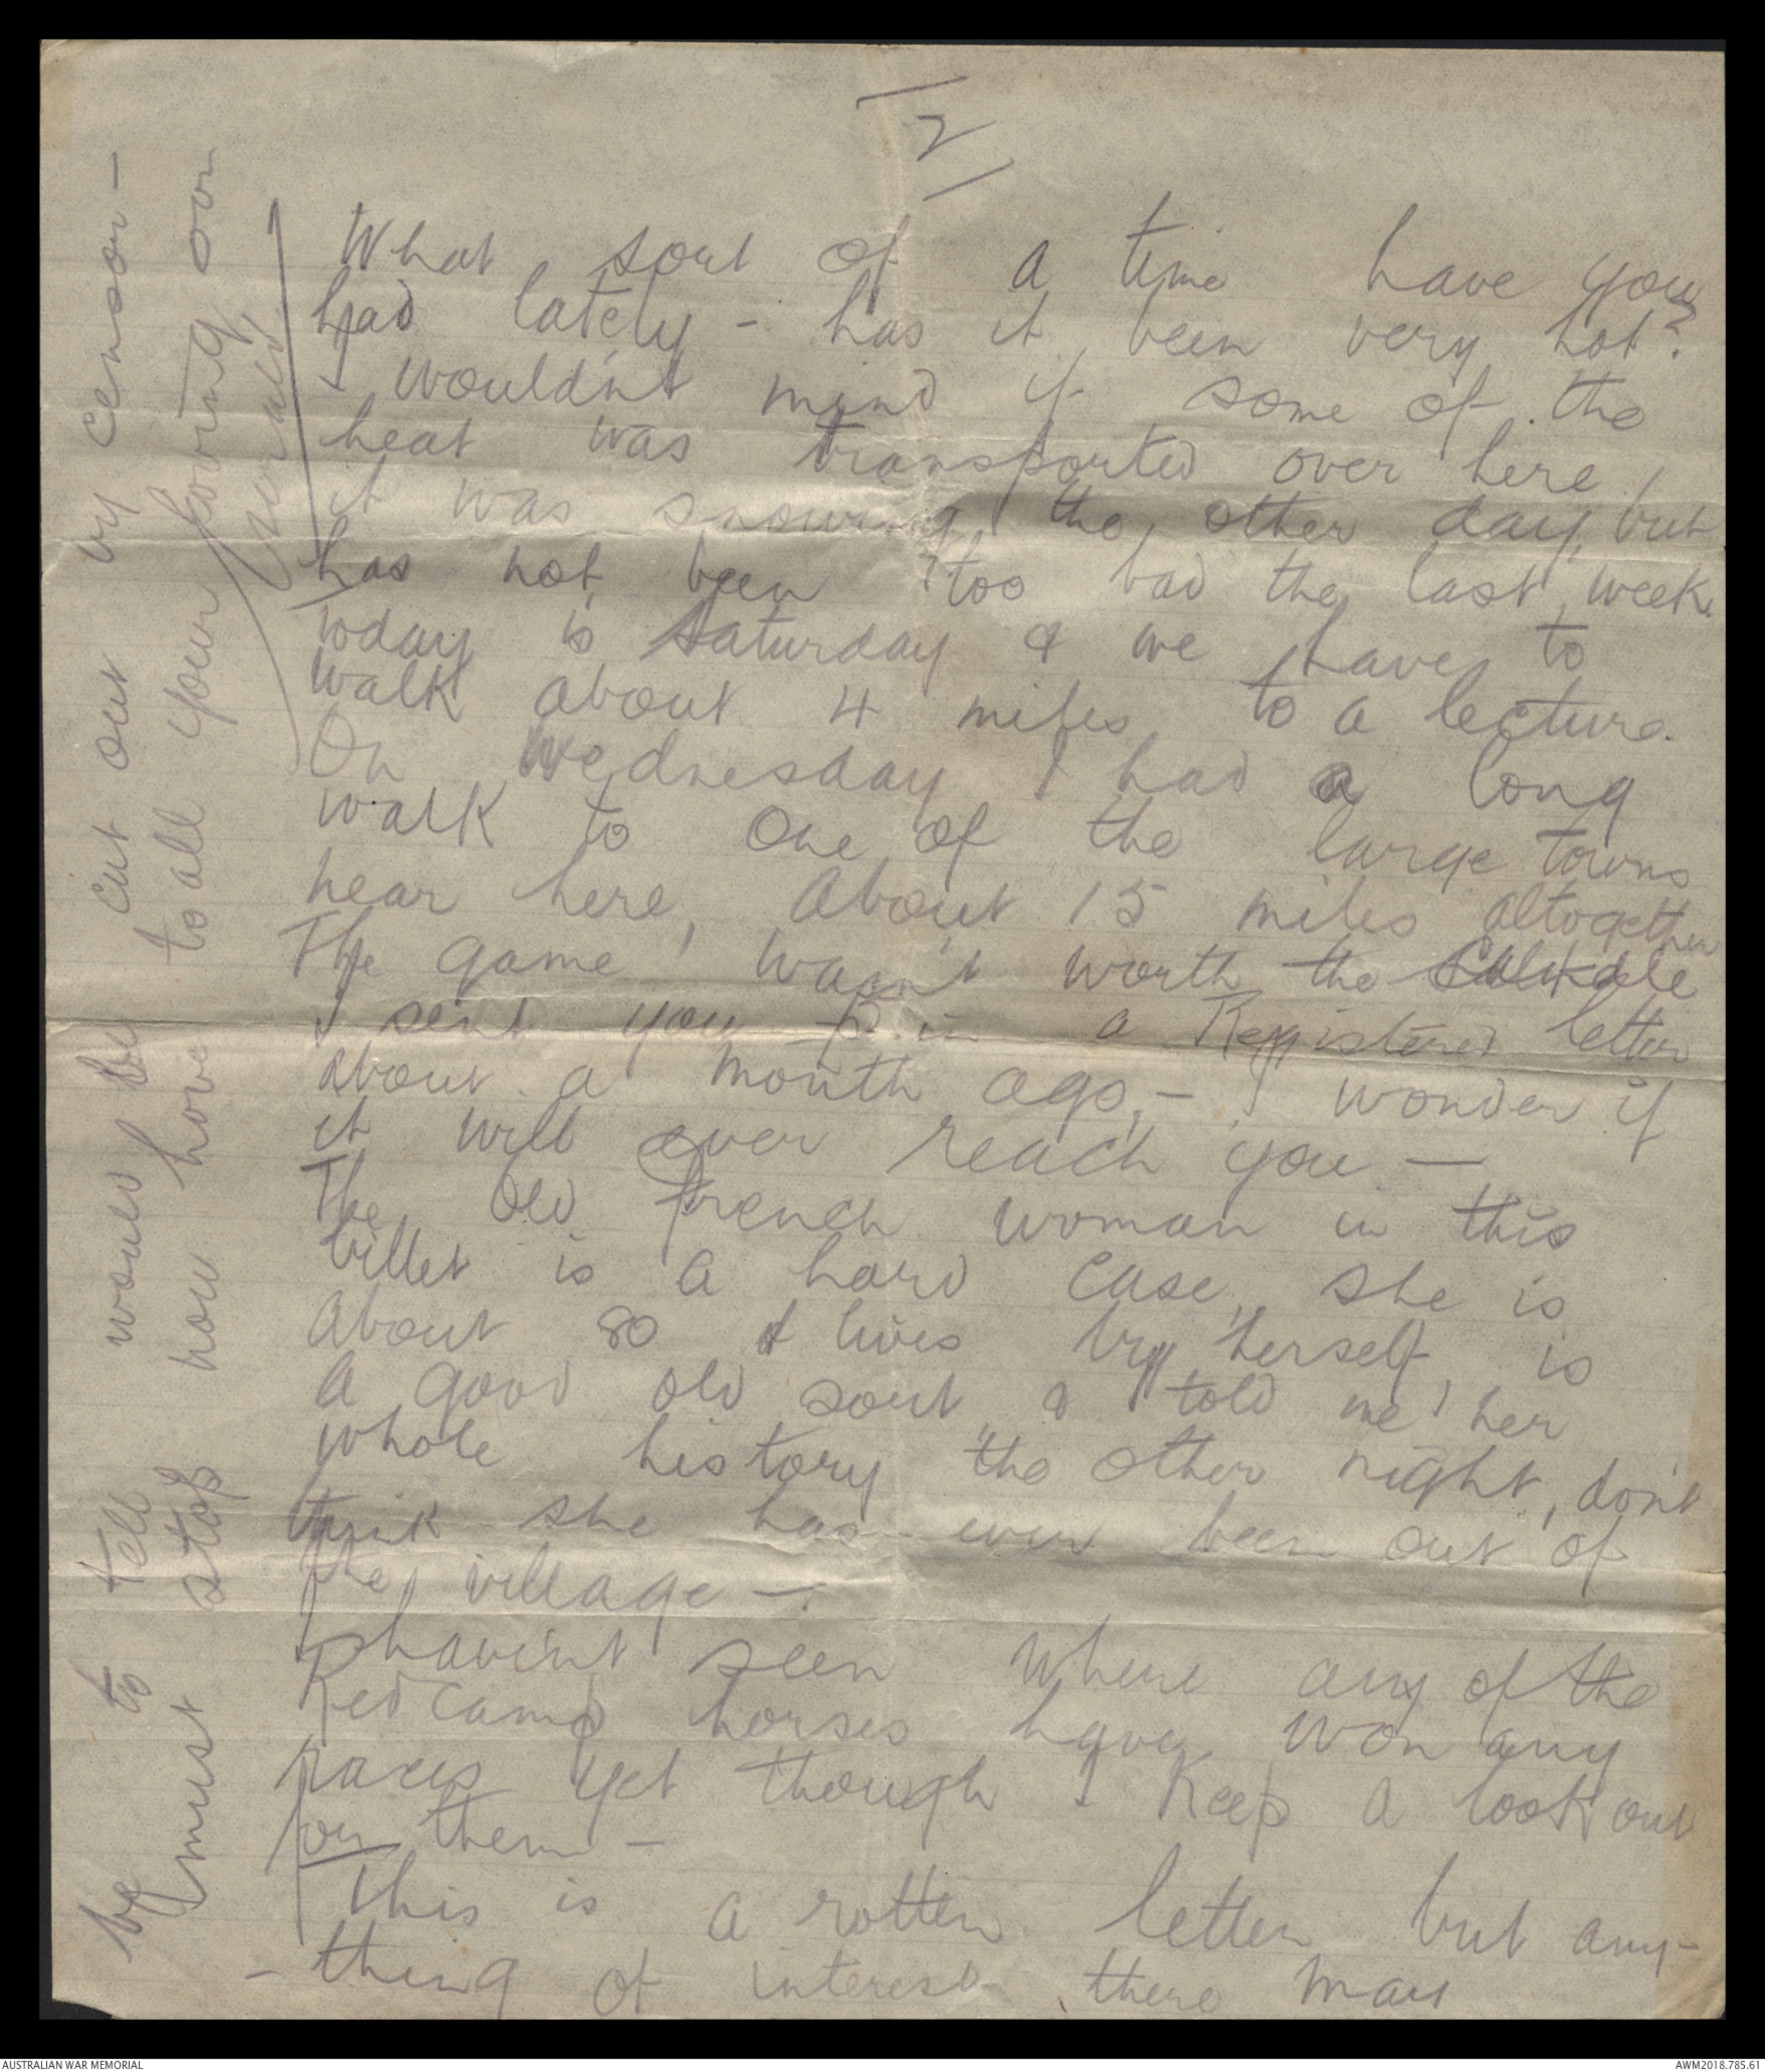 2
What sort of a time have you
had lately - has it been very hot?
I wouldn't mind if some of the
heat was transported over here,
it was snowing the other day, but
has not been too bad the last week.
Today is Saturday & we have to
walk about 4 miles to a lecture.
On Wednesday I had a long
walk to one of the large towns
near here, about 15 miles altogether
The game wasn't worth the
I sent you in a Registered letter
about a month ago, - I wonder if
it will ever reach you -
The old French woman in this
billet is a hard case, she is
about 80 & lives by herself, is
a good old sort & told me her
whole history the other night, don't
think she has ever been out of
the village -.
I havin't seen where any of the
Redcamp horses have won any
races yet though I keep a look out
for them -
This is a rotten letter but any-
-thing of interest there may
be to tell would be cut out by censor -
must stop now love to all your loving son
Gerald
AUSTRALIAN WAR MEMORIAL
AWM2018.785.61